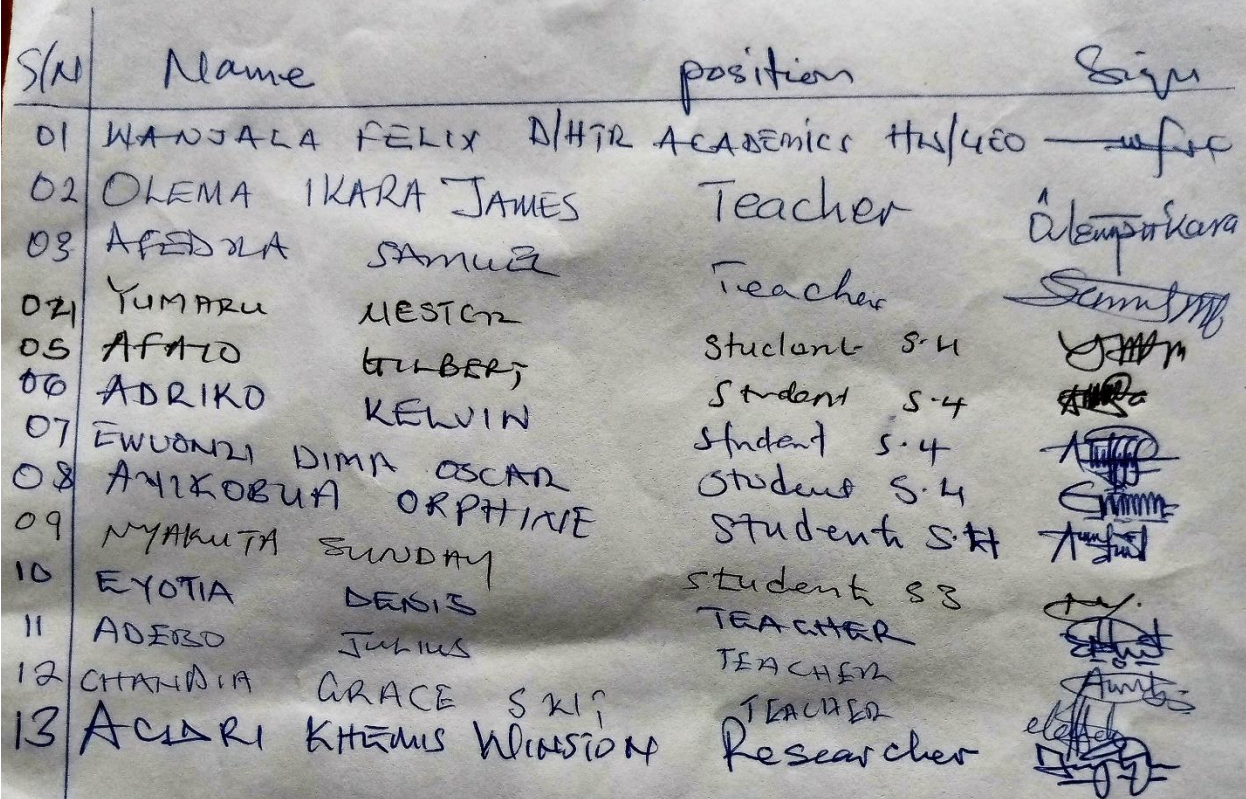 S/N Name position Sign
01 WANJALA FELIX D/HTR ACADEMICS HW/GEO
02 OLEMA IKARA JAMES Teacher
03 AFEDRA SAMUEL Teacher
04 YUMARU NESTOR Student S.4
05 AFAYO GILBERT Student S.4
06 ADRIKO KELVIN Student S.4
07 EWUONZI DIMA OSCAR Student S.4
08 AYIKOBUA ORPHINE Student S.4
09 NYAKUTA SUNDAY Student S3
10 EYOTIA DENIS TEACHER
11 ADEBO JULIUS TEACHER
12 CHANDIA GRACE TEACHER
13 KHEMIS WINSTON Researcher